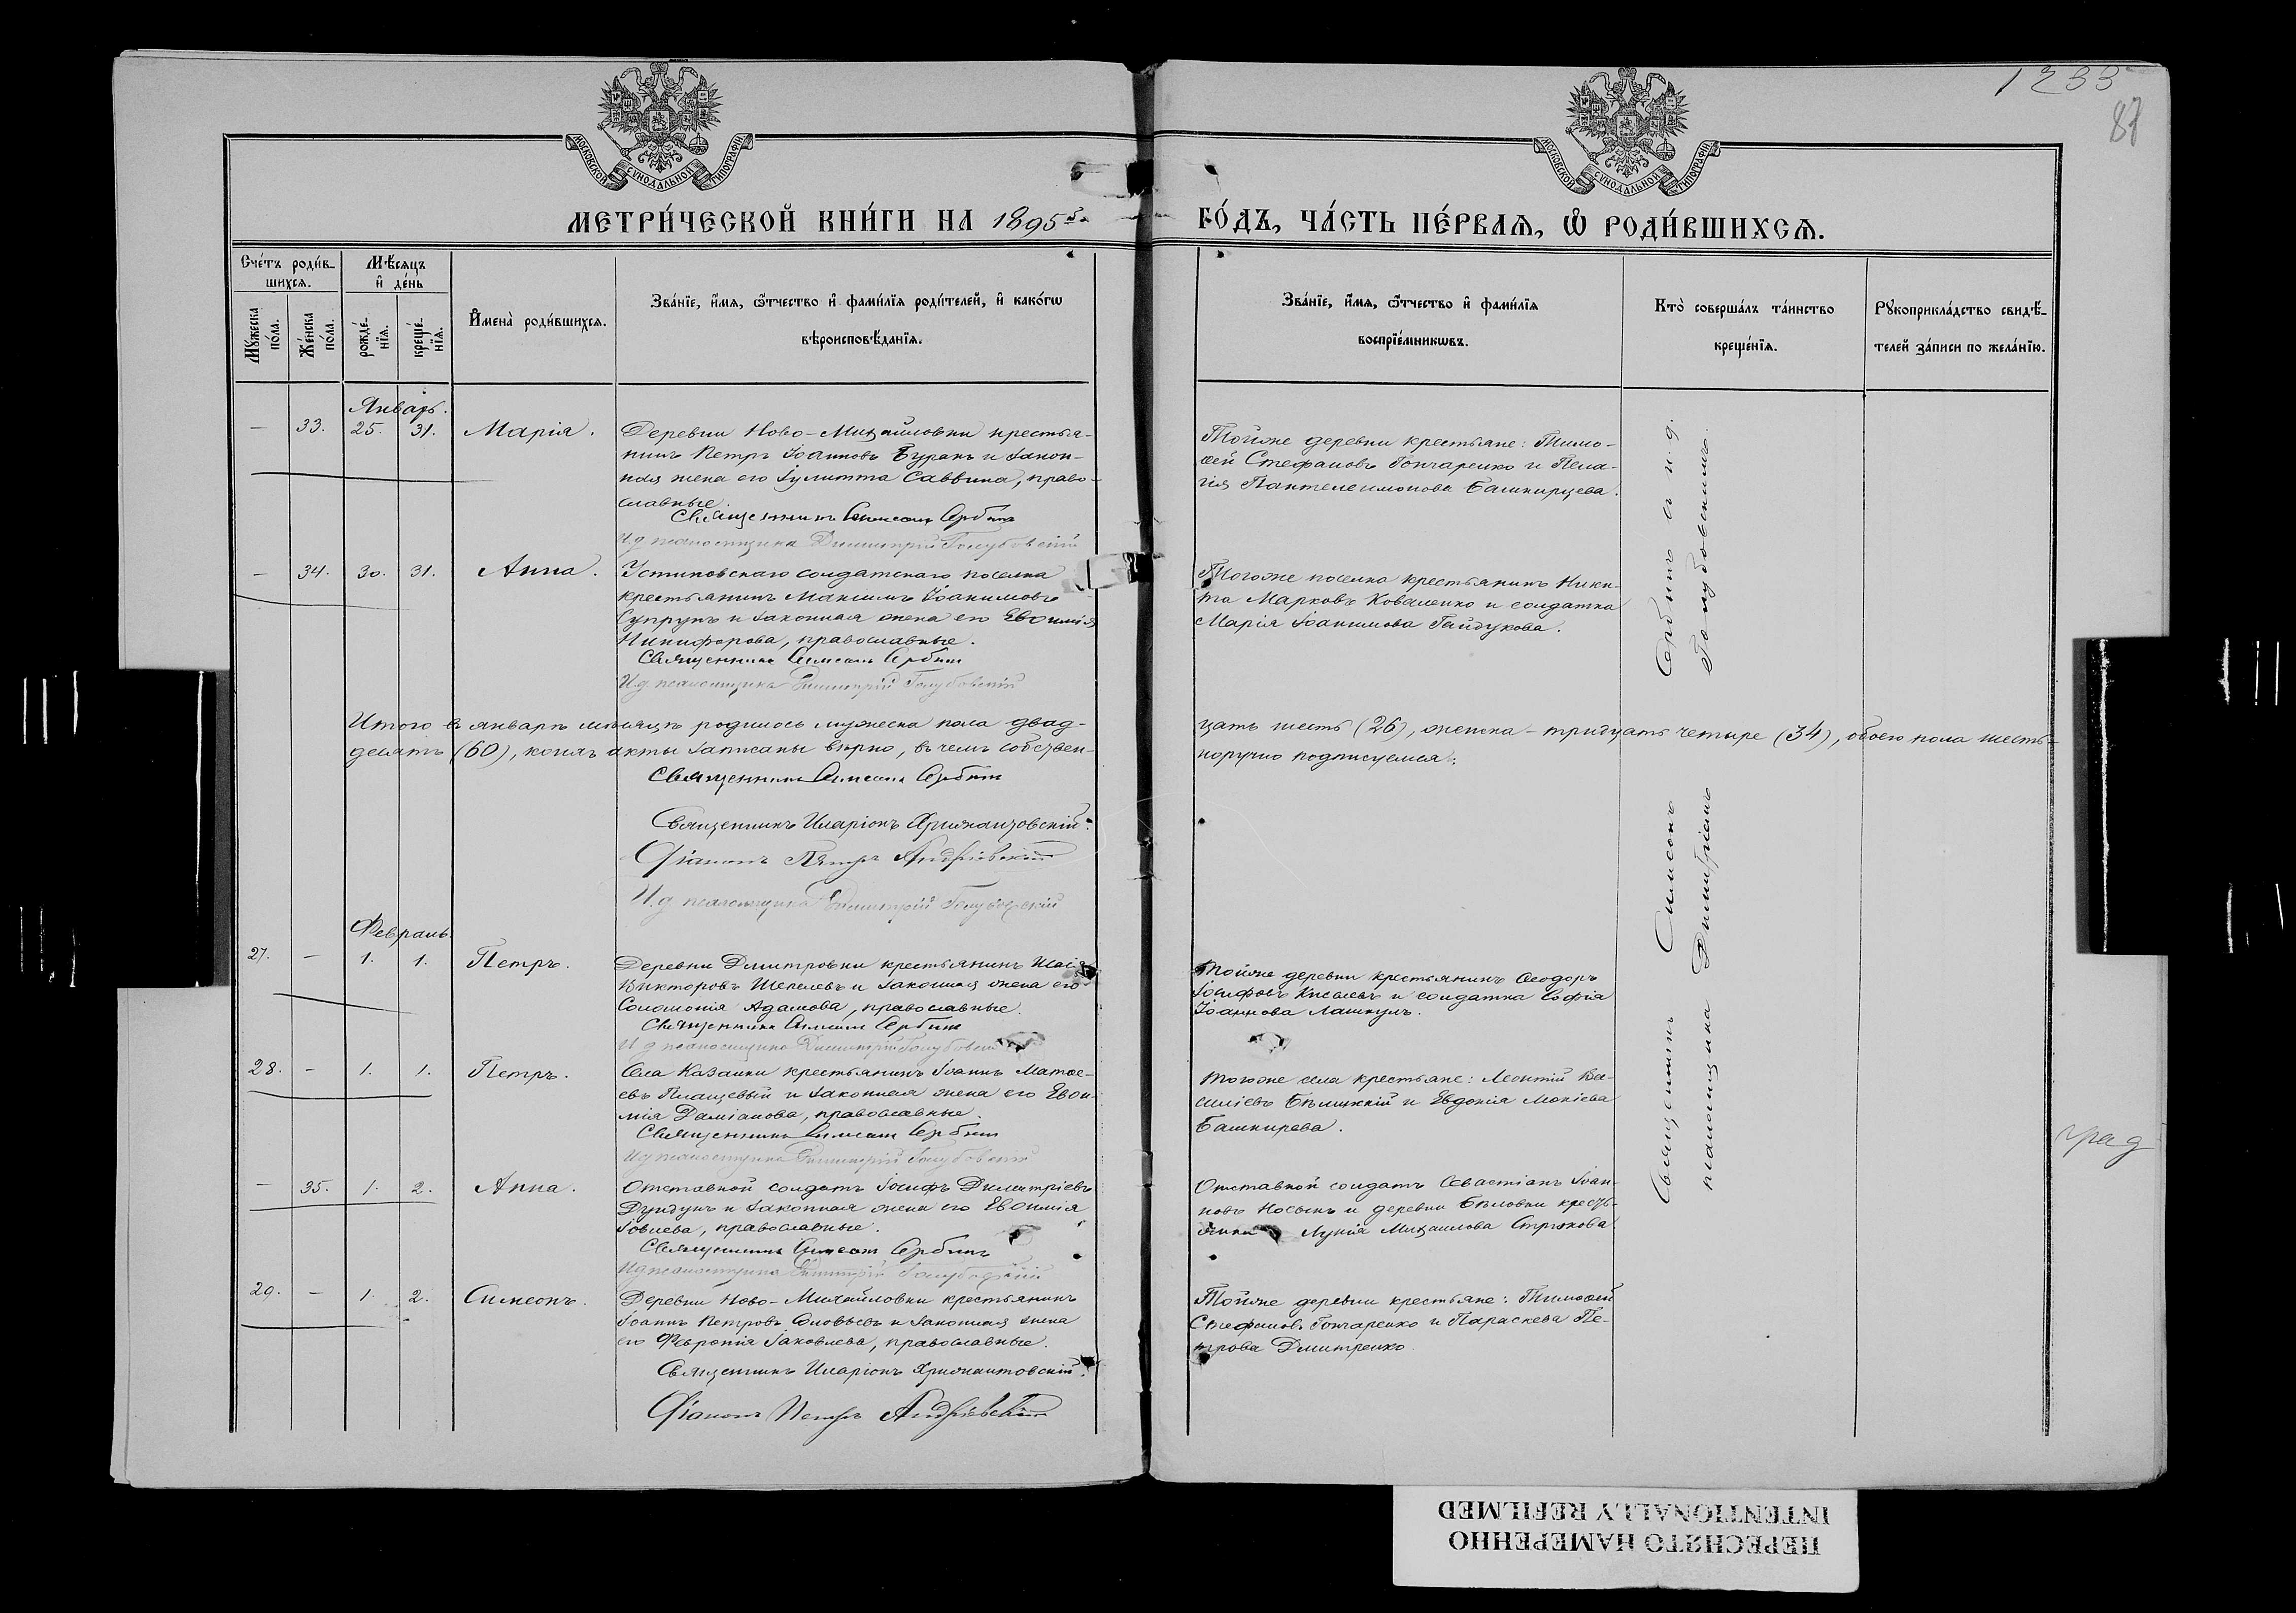 1233
87
МОСКОВСКОЙ СѴНОДАЛЬНОЙ ТИПОГРАФІИ
МОСКОВСКОЙ СѴНОДАЛЬНОЙ ТИПОГРАФІИ
МЕТРИ́ЧЕСКОЙ КНИ́ГИ НА 1895й
ГО́ДЪ, ЧА́СТЬ ПЕ́РВАѦ, Ѽ РОДИ́ВШИХСѦ.
Сче́тъ роди́в-
шихсѧ.
Мѣ́сѧцъ
и҆ де́нь
Мꙋ́жеска по́ла.
Же́нска по́ла.
рожде́-нїѧ.
креще́-нїѧ.
И҆мена̀ роди́вшихсѧ.
Зва́нїе, и҆́мѧ, ѻ҆́тчество и҆ фами́лїѧ роди́телей, и҆ како́гѡ
вѣроисповѣ́данїѧ.
Зва́нїе, и҆́мѧ, ѻ҆́тчество и҆ фами́лїѧ
воспрїе́мникѡвъ.
Кто̀ соверша́лъ та́инство
креще́нїѧ.
Рꙋкоприкла́дство свидѣ́-
телей за́писи по жела́нїю.
Январь.
— 33. 25. 31. Марія.
Деревни Ново-Михайловки крестья-
нинъ Петръ Іоанновъ Буракъ и закон-
ная жена его Іулитта Саввина, право-
славные.
Священникъ Симеонъ Сербинъ
И. д. псаломщика Димитрій Голубовскій
Тойже деревни крестьяне: Тимо-
ѳей Стефановъ Гончаренко и Пела-
гія Пантелеимонова Башкирцева.
— 34. 30. 31. Анна.
Устиновскаго солдатскаго поселка
крестьянинъ Максимъ Іоакимовъ
Супрунъ и законная жена его Евѳимія
Никифорова, православные.
Священникъ Симеонъ Сербинъ
И. д. псаломщика Димитрій Голубовскій
Тогоже поселка крестьянинъ Ники-
та Марковъ Коваленко и солдатка
Марія Іоакимова Гайдукова.
Итого въ январѣ мѣсяцѣ родилось мужеска пола двад-
цать шесть (26), женска - тридцать четыре (34), обоего пола шесть-
десятъ (60), коихъ акты записаны вѣрно, въ чемъ собствен-
норучно подписуемся:
Священникъ Симеонъ Сербинъ
Священникъ Иларіонъ Хрисанѳовскій.
Діаконъ Петръ Андріевскій
И. д. псаломщика Димитрій Голубовскій
Февраль.
27. — 1. 1. Петръ.
Деревни Дмитровки крестьянинъ Исаія
Викторовъ Шепелевъ и законная жена его
Соломонія Адамова, православные.
Священникъ Симеонъ Сербинъ
И. д. псаломщика Димитрій Голубовскій
Тойже деревни крестьянинъ Ѳеодоръ
Іосифовъ Киселевъ и солдатка Софія
Іоаннова Лашкулъ.
28. — 1. 1. Петръ.
Села Казанки крестьянинъ Іоаннъ Матѳе-
евъ Плащевый и законная жена его Евѳи-
мія Даміанова, православные.
Священникъ Симеонъ Сербинъ
И. д. псаломщика Димитрій Голубовскій
Тогоже села крестьяне: Леонтій Ва-
силіевъ Бѣлицкій и Евдокія Мокіева
Башкирева.
— 35. 1. 2. Анна.
Отставной солдатъ Іосифъ Димитріевъ
Дундукъ и законная жена его Евѳимія
Іовлева, православные.
Священникъ Симеонъ Сербинъ
И. д. псаломщика Димитрій Голубовскій
Отставной солдатъ Севастіанъ Іоан-
новъ Носынъ и деревни Бѣловки кресть-
янка Лукія Михаилова Стрюкова
29. — 1. 2. Симеонъ.
Деревни Ново-Михайловки крестьянинъ
Іоаннъ Петровъ Соловьевъ и законная жена
его Февронія Іаковлева, православные.
Священникъ Иларіонъ Хрисанѳовскій.
Діаконъ Петръ Андріевскій
Тойже деревни крестьяне: Тимоѳей
Стефановъ Гончаренко и Параскева Пе-
трова Дмитренко
Священникъ Симеонъ Сербинъ съ и. д.
псаломщика Димитріемъ Голубовскимъ.
град
ПЕРЕСНЯТО НАМЕРЕННО
INTENTIONALLY REFILMED